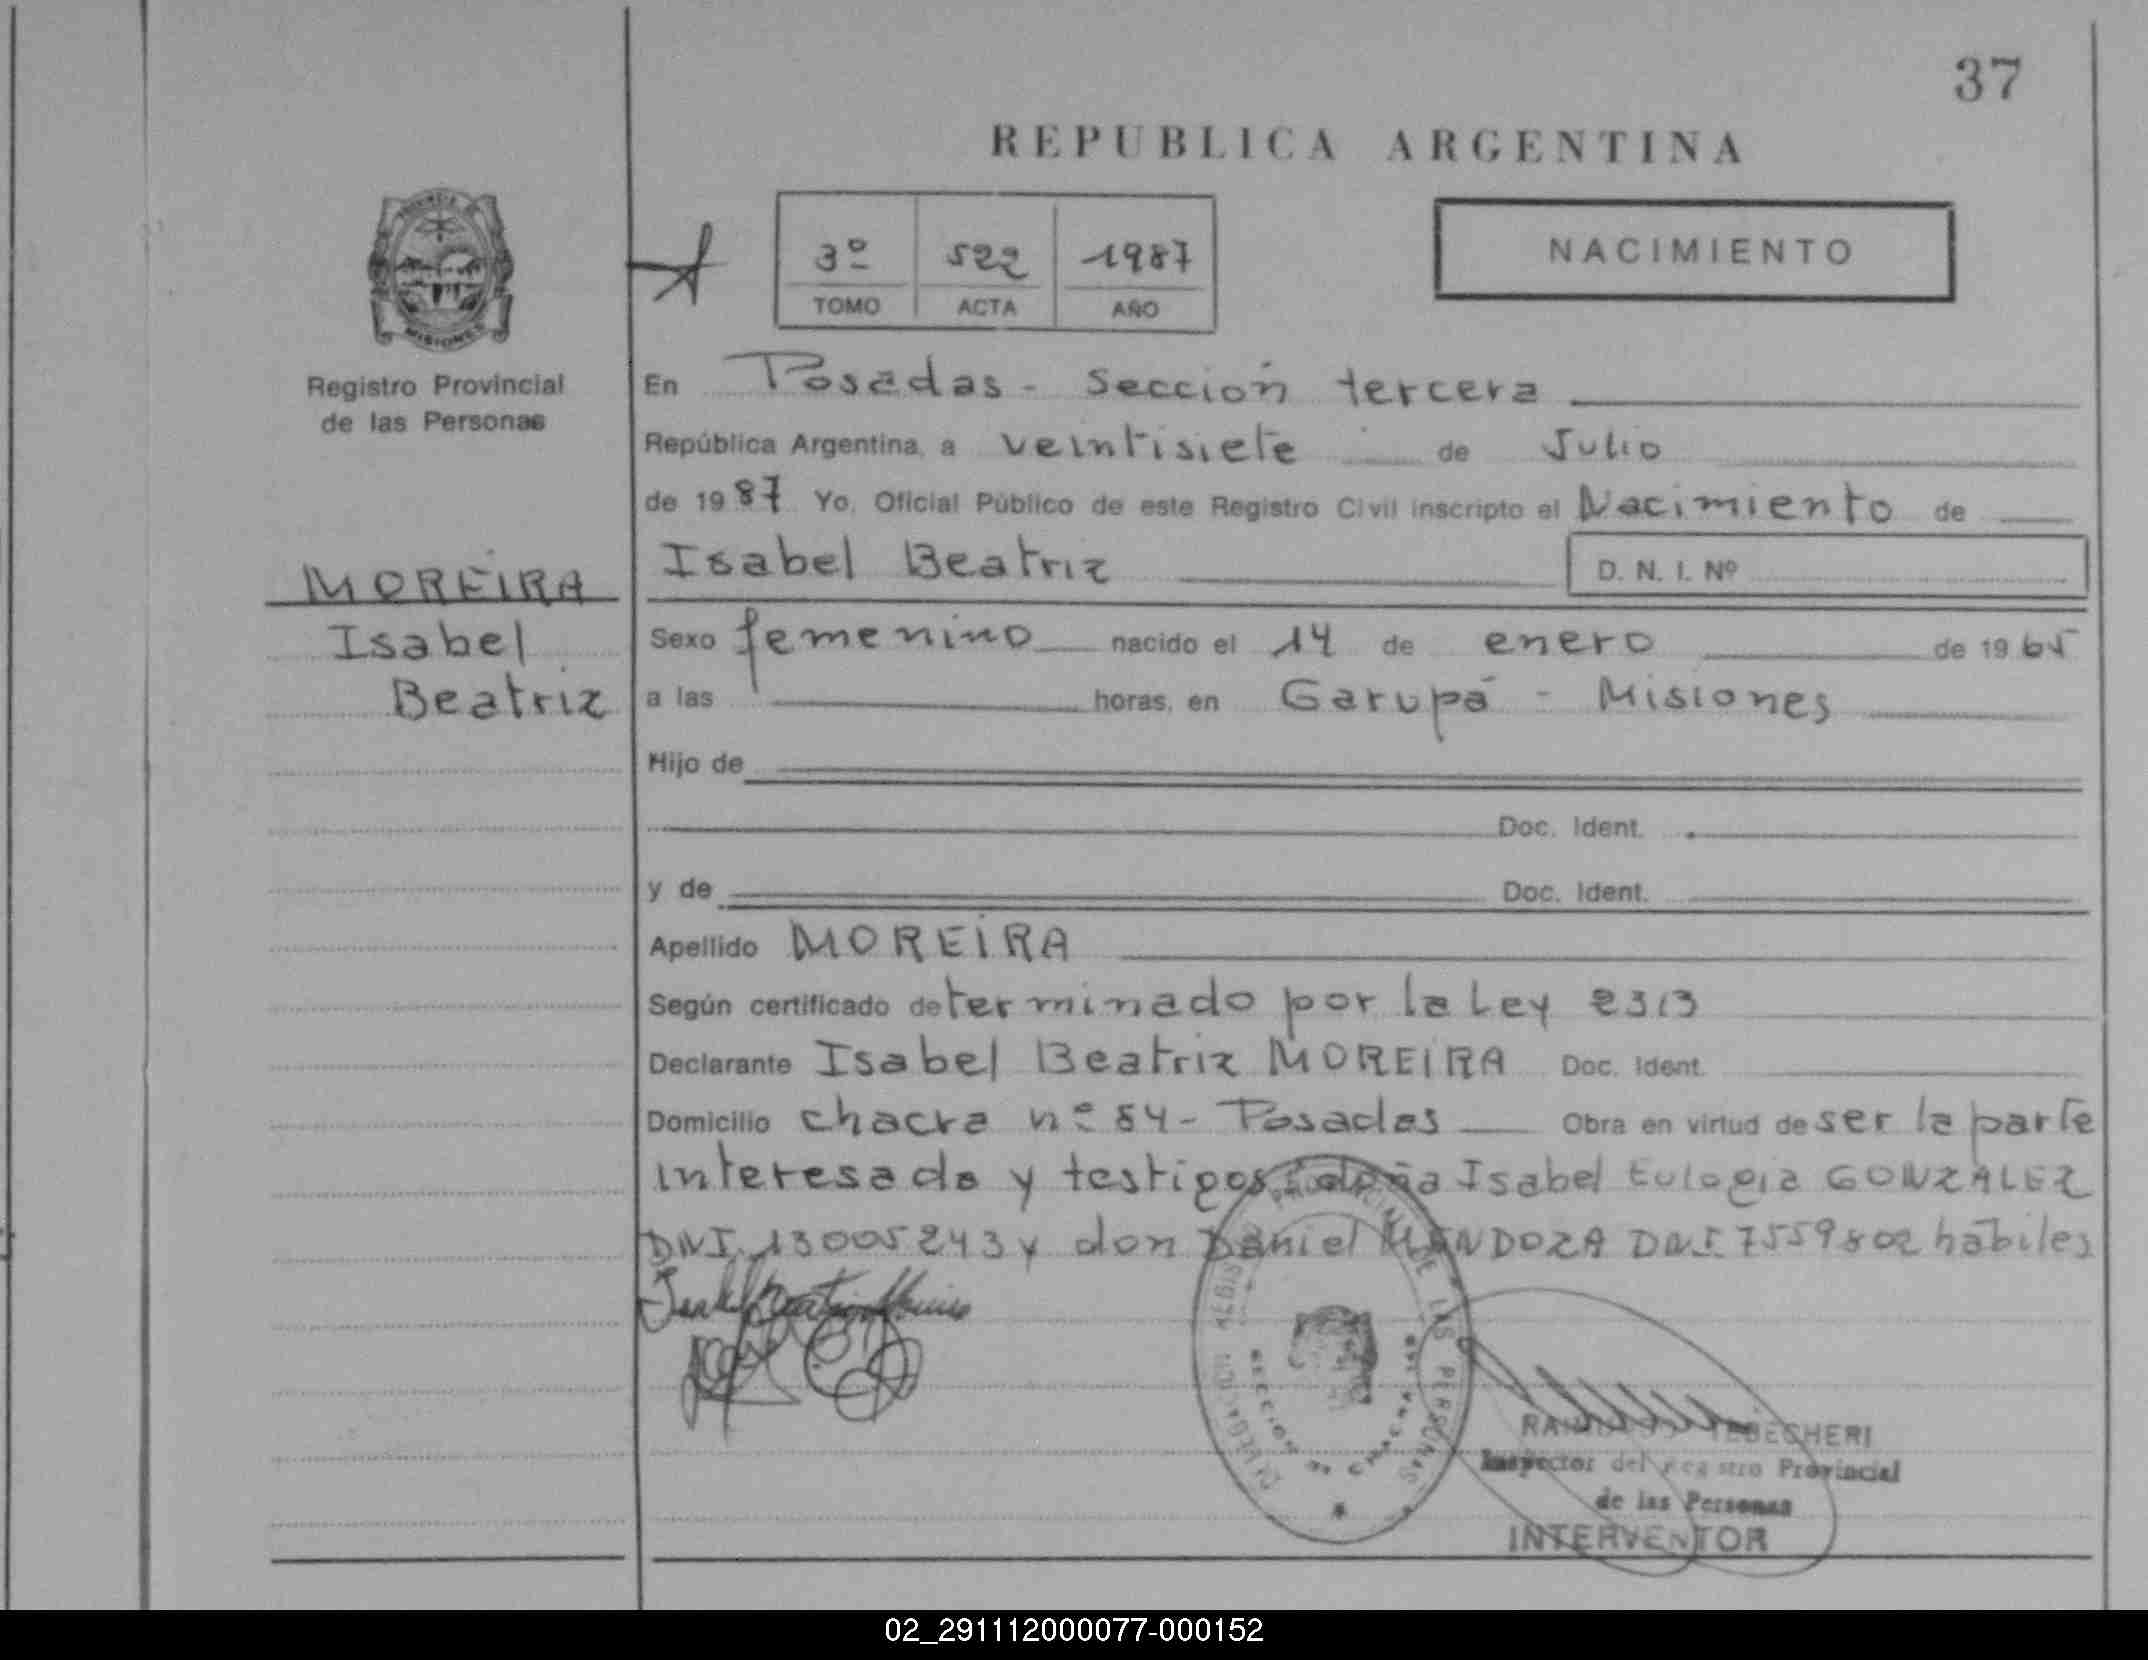 37
REPUBLICA ARGENTINA
MISIONES
Registro Provincial
de las Personas
3º 522 1987
TOMO ACTA AÑO
NACIMIENTO
En Posadas - Sección tercera
República Argentina, a veintisiete de Julio
de 1987 Yo, Oficial Público de este Registro Civil inscripto el Nacimiento de
Isabel Beatriz D. N. I. Nº
MOREIRA
Isabel
Beatriz
Sexo femenino nacido el 14 de enero de 1965
a las horas, en Garupá - Misiones
Hijo de
Doc. Ident.
y de Doc. Ident.
Apellido MOREIRA
Según certificado determinado por la Ley 2313
Declarante Isabel Beatriz MOREIRA Doc. Ident.
Domicilio chacra nº 84 - Posadas Obra en virtud de ser la parte
interesada y testigos doña Isabel Eulogia GONZALEZ
DNI. 13005243 y don Daniel MENDOZA DNI. 7559802 hábiles
DE LAS PERSONAS
SECCION
CHACRA
TEBECHERI
Inspector del Registro Provincial
de las Personas
INTERVENTOR
02_291112000077-000152